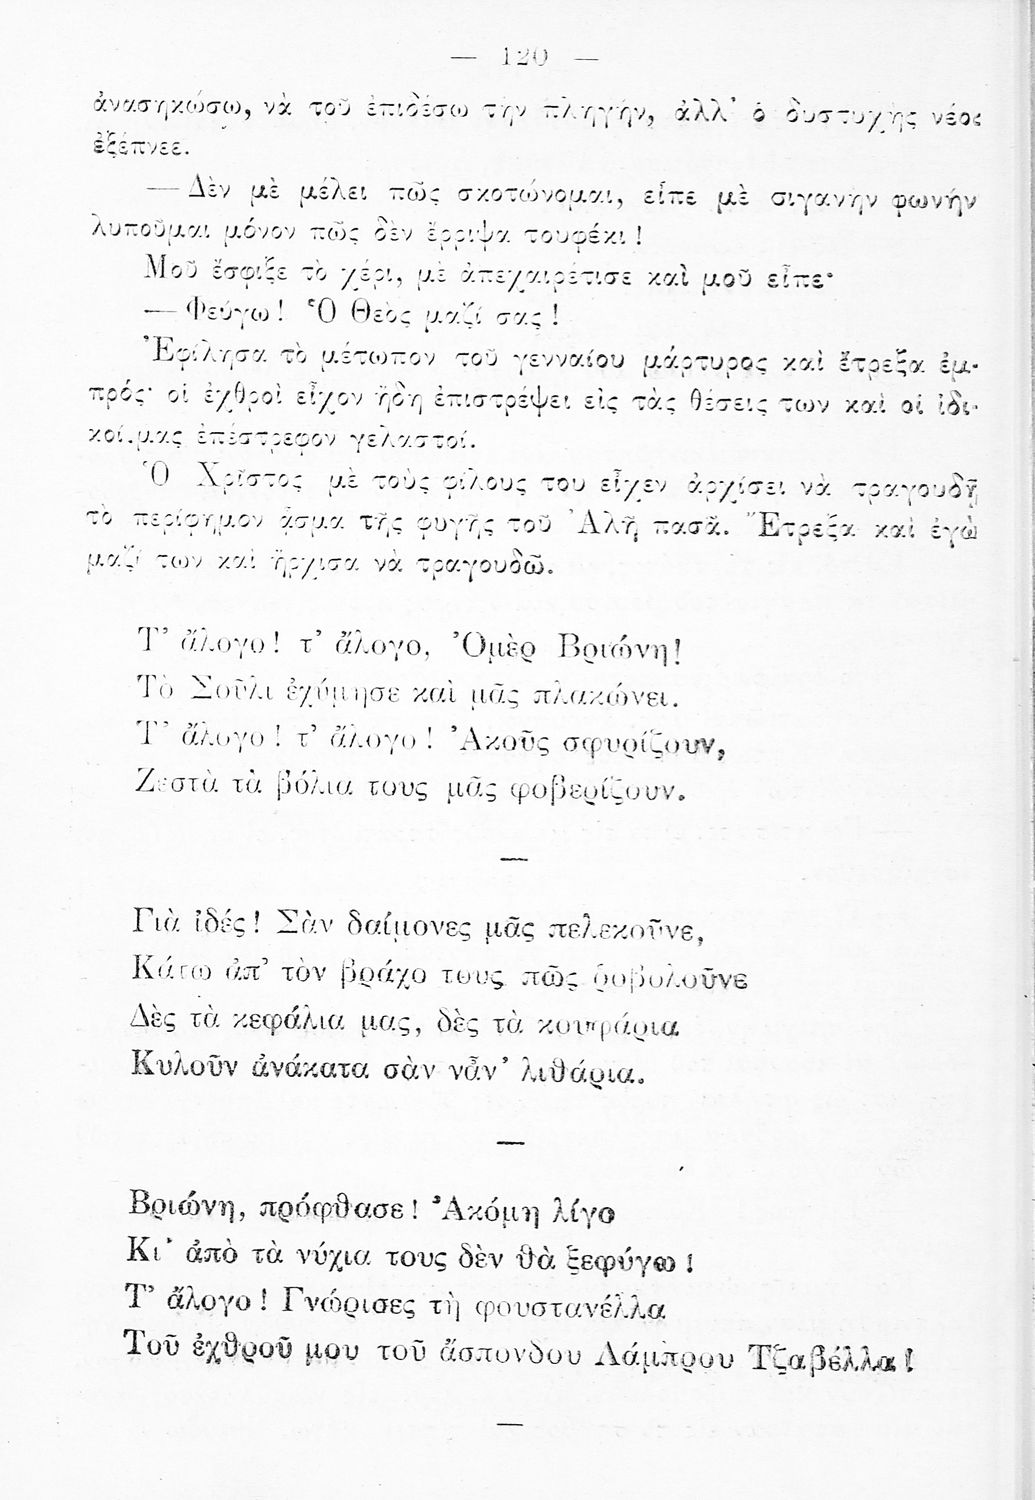 — 120 —
ἀνασηκώσω, νὰ τοῦ ἐπιδέσω τὴν πληγήν, ἀλλ' ὁ δυστυχὴς νέος
ἐξέπνεε.
— Δὲν μὲ μέλει πῶς σκοτώνομαι, εἶπε μὲ σιγανὴν φωνήν
λυποῦμαι μόνον πῶς δὲν ἔρριψα τουφέκι !
Μοῦ ἔσφιξε τὸ χέρι, μὲ ἀπεχαιρέτισε καὶ μοῦ εἶπε·
— Φεύγω ! Ὁ Θεὸς μαζί σας !
Ἐφίλησα τὸ μέτωπον τοῦ γενναίου μάρτυρος καὶ ἔτρεξα ἐμ-
πρός· οἱ ἐχθροὶ εἶχον ἤδη ἐπιστρέψει εἰς τὰς θέσεις των καὶ οἱ ἰδι-
κοί.μας ἐπέστρεφον γελαστοί.
Ὁ Χρῖστος μὲ τοὺς φίλους του εἶχεν ἀρχίσει νὰ τραγουδῇ
τὸ περίφημον ᾆσμα τῆς φυγῆς τοῦ Ἀλῆ πασᾶ. Ἔτρεξα καὶ ἐγὼ
μαζί των καὶ ἤρχισα νὰ τραγουδῶ.
Τ' ἄλογο! τ' ἄλογο, Ὀμὲρ Βριώνη!
Τὸ Σοῦλι ἐχύμησε καὶ μᾶς πλακώνει.
Τ' ἄλογο! τ' ἄλογο! Ἀκοῦς σφυρίζουν,
Ζεστὰ τὰ βόλια τους μᾶς φοβερίζουν.
—
Γιὰ ἰδές! Σὰν δαίμονες μᾶς πελεκοῦνε,
Κάτω ἀπ' τὸν βράχο τους πῶς ῥοβολοῦνε
Δὲς τὰ κεφάλια μας, δὲς τὰ κουφάρια
Κυλοῦν ἀνάκατα σὰν νἆν' λιθάρια.
—
Βριώνη, πρόφθασε! Ἀκόμη λίγο
Κι' ἀπὸ τὰ νύχια τους δὲν θὰ ξεφύγω !
Τ' ἄλογο! Γνώρισες τὴ φουστανέλλα
Τοῦ ἐχθροῦ μου τοῦ ἄσπονδου Λάμπρου Τζαβέλλα !
—